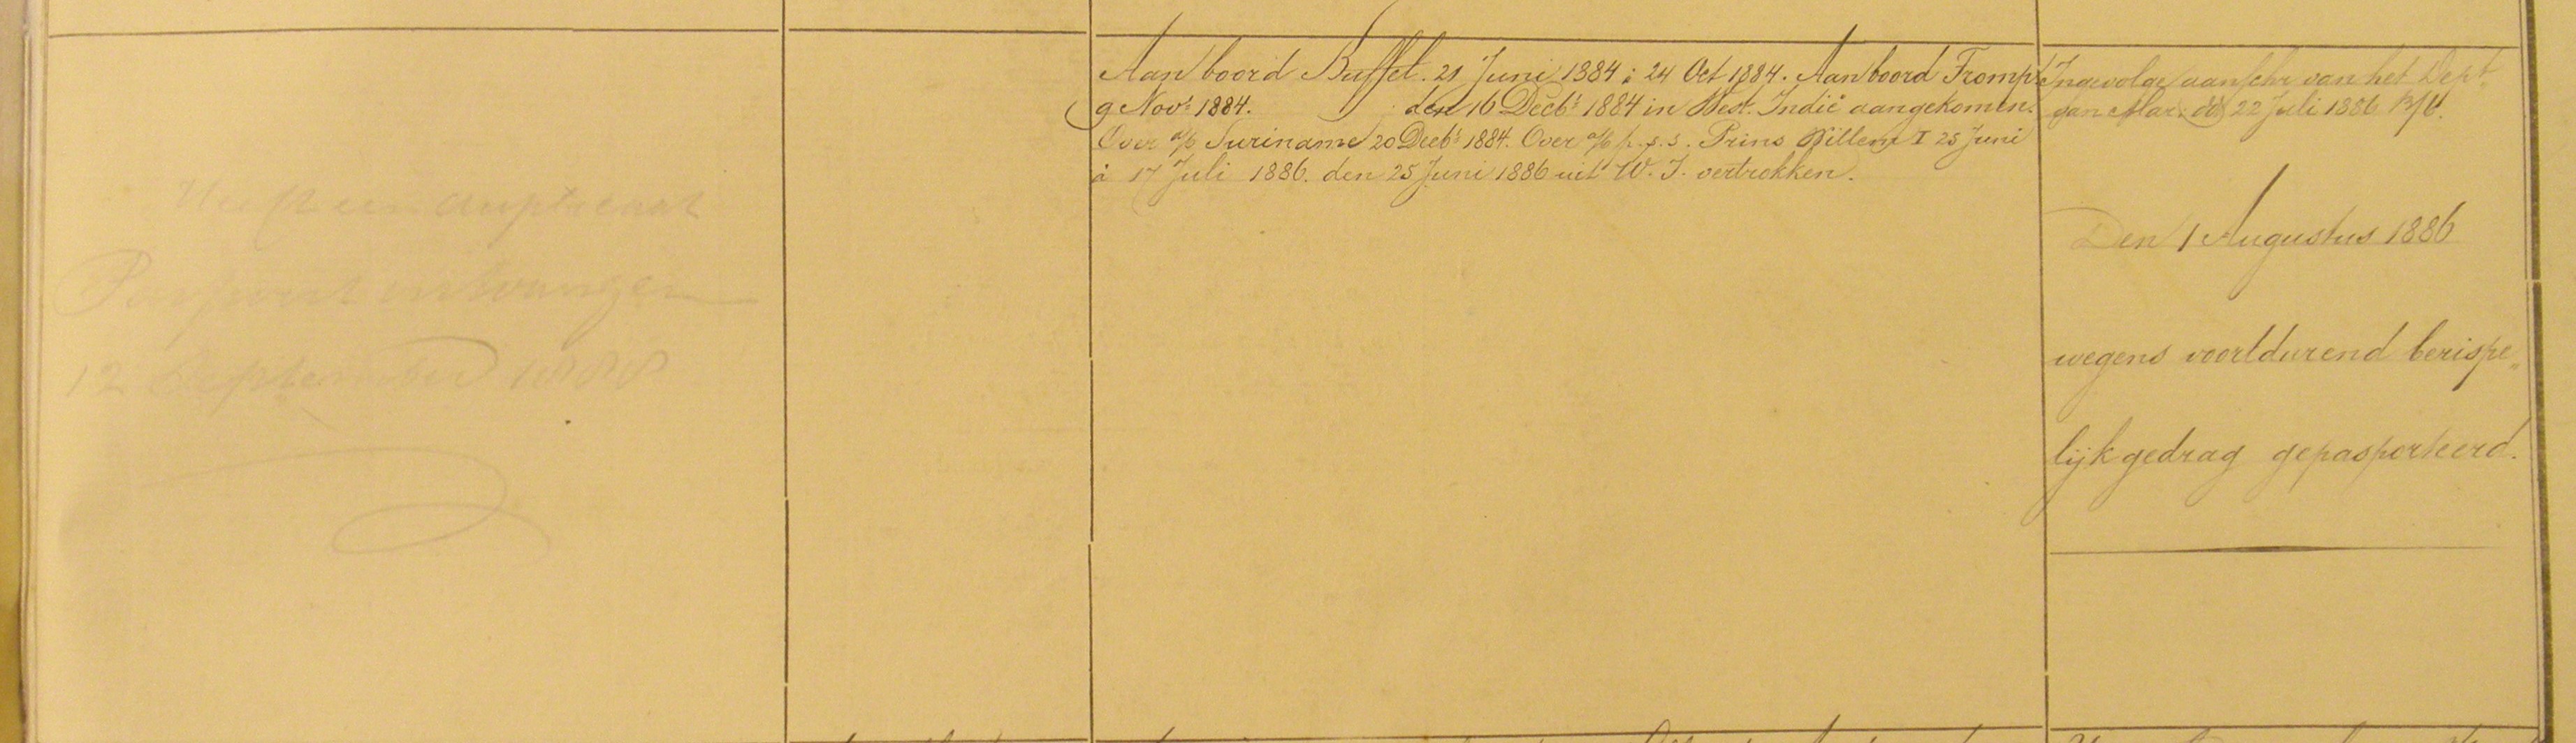 Heeft een duplicaat
Paspoort ontvangen
12 September 1888
Aan boord Buffel. 21 Juni 1884 à 24 Oct 1884. Aan boord Tromp
9 Novr 1884. den 16 Decbr 1884 in West. Indië aangekomen.
Over a/b Suriname 20 Decbr 1884. Over a/b p.s.s. Prins Willem I 25 Juni
à 17 Juli 1886. den 25 Juni 1886 uit W. I. vertrokken.
Ingevolge aanschr van het Dept
van Mar: dd 22 Juli 1886
Den 1 Augustus 1886
wegens voortdurend berispe„
lijk gedrag gepasporteerd.